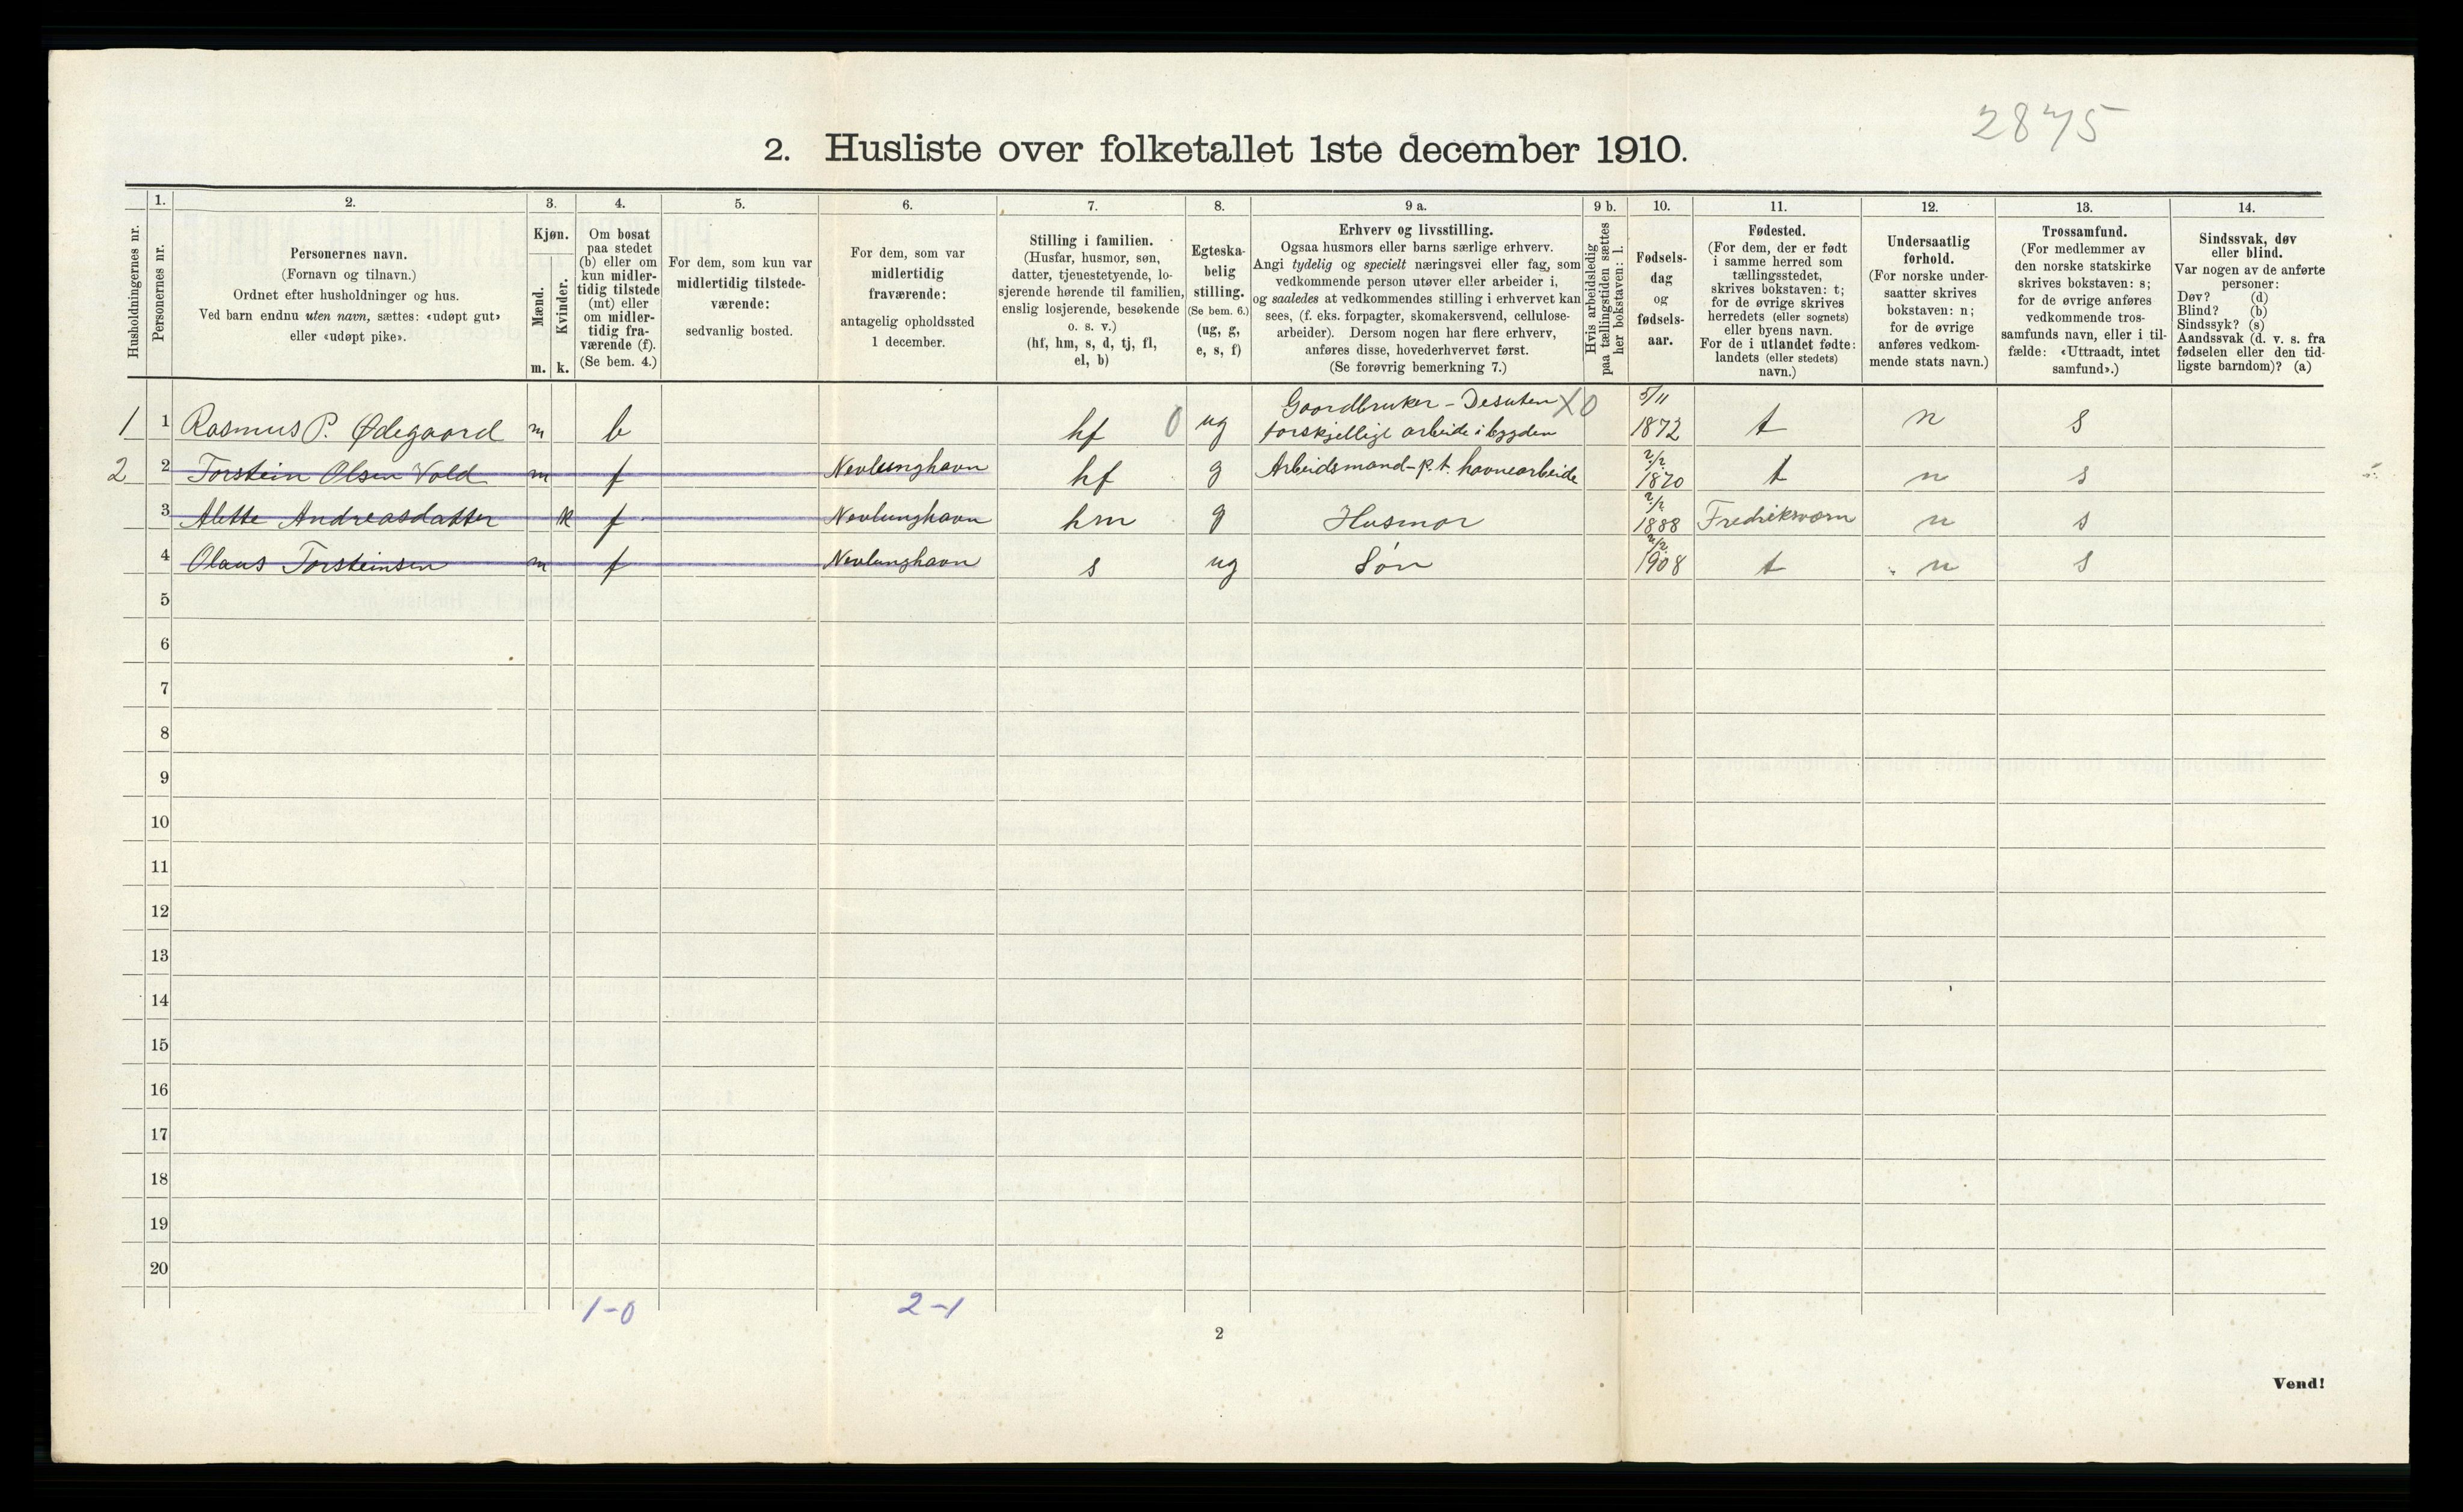 2875
2. Husliste over folketallet 1ste december 1910.
Husholdningernes nr.
1.
Personernes nr.
2.
Personernes navn.
(Fornavn og tilnavn.)
Ordnet efter husholdninger og hus.
Ved barn endnu uten navn, sættes: «udøpt gut»
eller «udøpt pike».
3.
Kjøn.
Mænd.
Kvinder.
m. k.
4.
Om bosat
paa stedet
(b) eller om
kun midler-
tidig tilstede
(mt) eller
om midler-
tidig fra-
værende (f).
(Se bem. 4.)
5.
For dem, som kun var
midlertidig tilstede-
værende:
sedvanlig bosted.
6.
For dem, som var
midlertidig
fraværende:
antagelig opholdssted
1 december.
7.
Stilling i familien.
(Husfar, husmor, søn,
datter, tjenestetyende, lo-
sjerende hørende til familien,
enslig losjerende, besøkende
o. s. v.)
(hf, hm, s, d, tj, fl,
el, b)
8.
Egteska-
belig
stilling.
(Se bem. 6.)
(ug, g,
e, s, f)
9 a.
Erhverv og livsstilling.
Ogsaa husmors eller barns særlige erhverv.
Angi tydelig og specielt næringsvei eller fag, som
vedkommende person utøver eller arbeider i,
og saaledes at vedkommendes stilling i erhvervet kan
sees, (f. eks. forpagter, skomakersvend, cellulose-
arbeider). Dersom nogen har flere erhverv,
anføres disse, hovederhvervet først.
(Se forøvrig bemerkning 7.)
9 b.
Hvis arbeidsledig
paa tællingstiden sættes
her bokstaven: l.
10.
Fødsels-
dag
og
fødsels-
aar.
11.
Fødested.
(For dem, der er født
i samme herred som
tællingsstedet,
skrives bokstaven: t;
for de øvrige skrives
herredets (eller sognets)
eller byens navn.
For de i utlandet fødte:
landets (eller stedets)
navn.)
12.
Undersaatlig
forhold.
(For norske under-
saatter skrives
bokstaven: n;
for de øvrige
anføres vedkom-
mende stats navn.)
13.
Trossamfund.
(For medlemmer av
den norske statskirke
skrives bokstaven: s;
for de øvrige anføres
vedkommende tros-
samfunds navn, eller i til-
fælde: «Uttraadt, intet
samfund».)
14.
Sindssvak, døv
eller blind.
Var nogen av de anførte
personer:
Døv? (d)
Blind? (b)
Sindssyk? (s)
Aandssvak (d. v. s. fra
fødselen eller den tid-
ligste barndom)? (a)
1 1 Rasmus P. Ødegaard m b hf 0 ug Gaardbruker - Desuten X0 forskjellige arbeide i bygden 5/11 1872 t n s
2 2 Torstein Olsen Vold m f Nevlunghavn hf g Arbeidsmand - p.t. havnearbeide ?/? 1870 t n s
3 Alette Andreasdatter k f Nevlunghavn hm g Husmor ?/? 1888 Fredriksværn n s
4 Olaus Torsteinsen m f Nevlunghavn s ug Søn ?/? 1908 t n s
5
6
7
8
9
10
11
12
13
14
15
16
17
18
19
20
1-0 2-1
2
Vend!